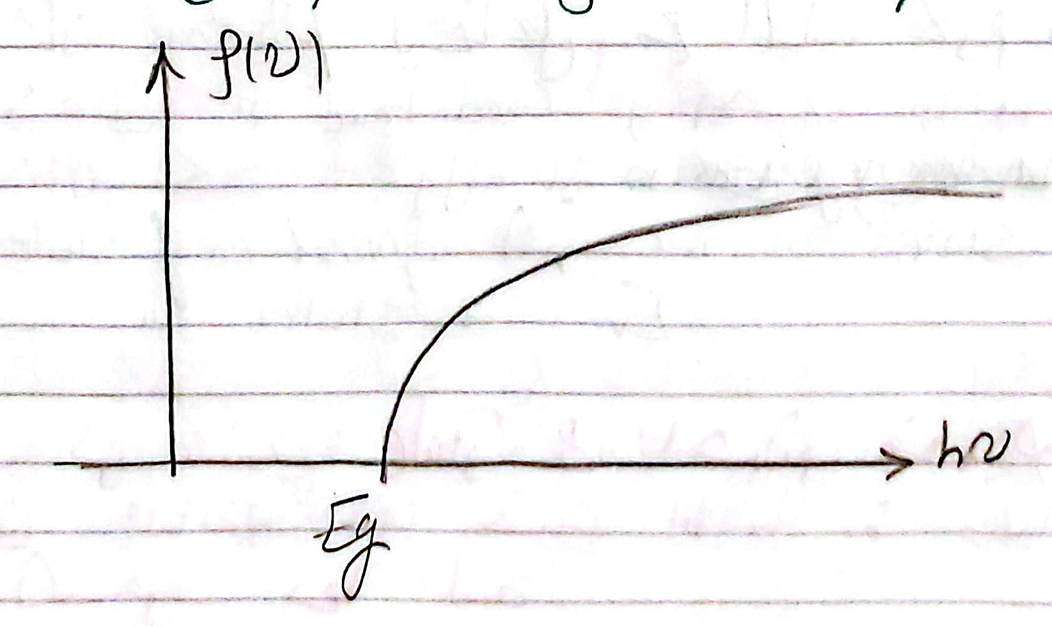 ρ(ν)
hν
Eg